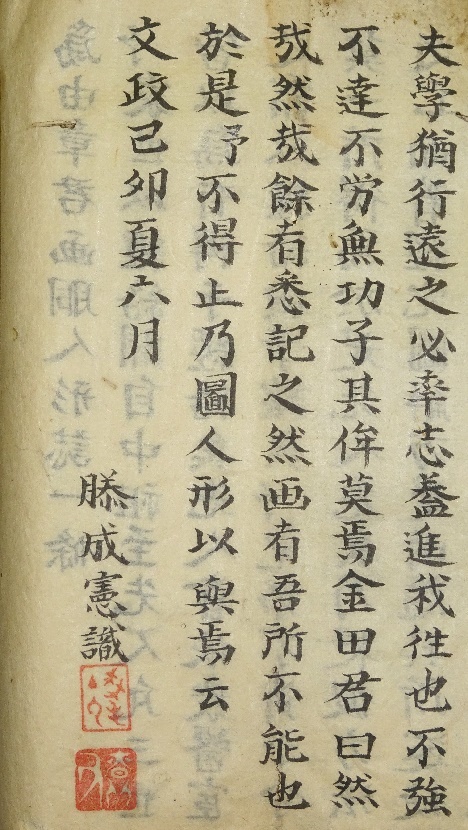 夫學猶行遠之必率志盍進我徃也不強
不達不労無功子其侔莫焉金田君曰然
哉然哉餘者悉記之然画者吾所不能也
於是予不得止乃圖人形以與焉云
文政己卯夏六月
滕成憲識